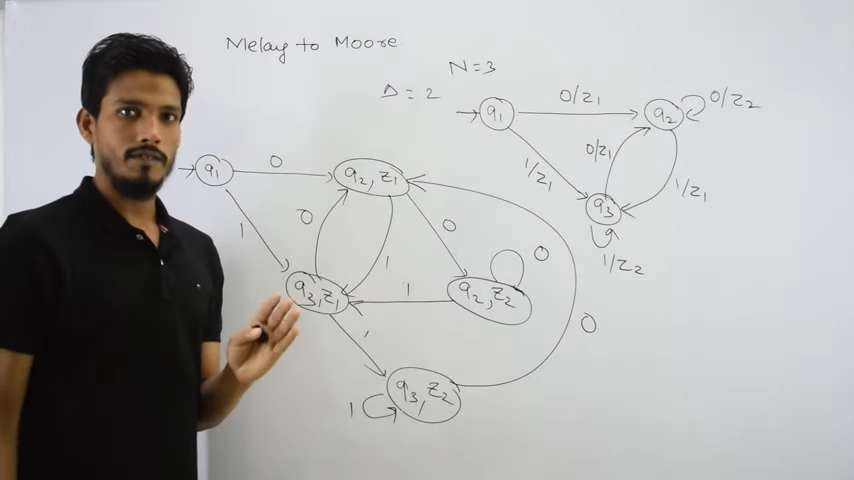 Melay to Moore
N=3
Δ = 2
q1
0/z1
q2
0/z2
0/z1
1/z1
1/z1
q3
1/z2
q1
0
q2, z1
1
0
1
0
0
q3, z1
1
q2, z2
0
1
q3, z2
1